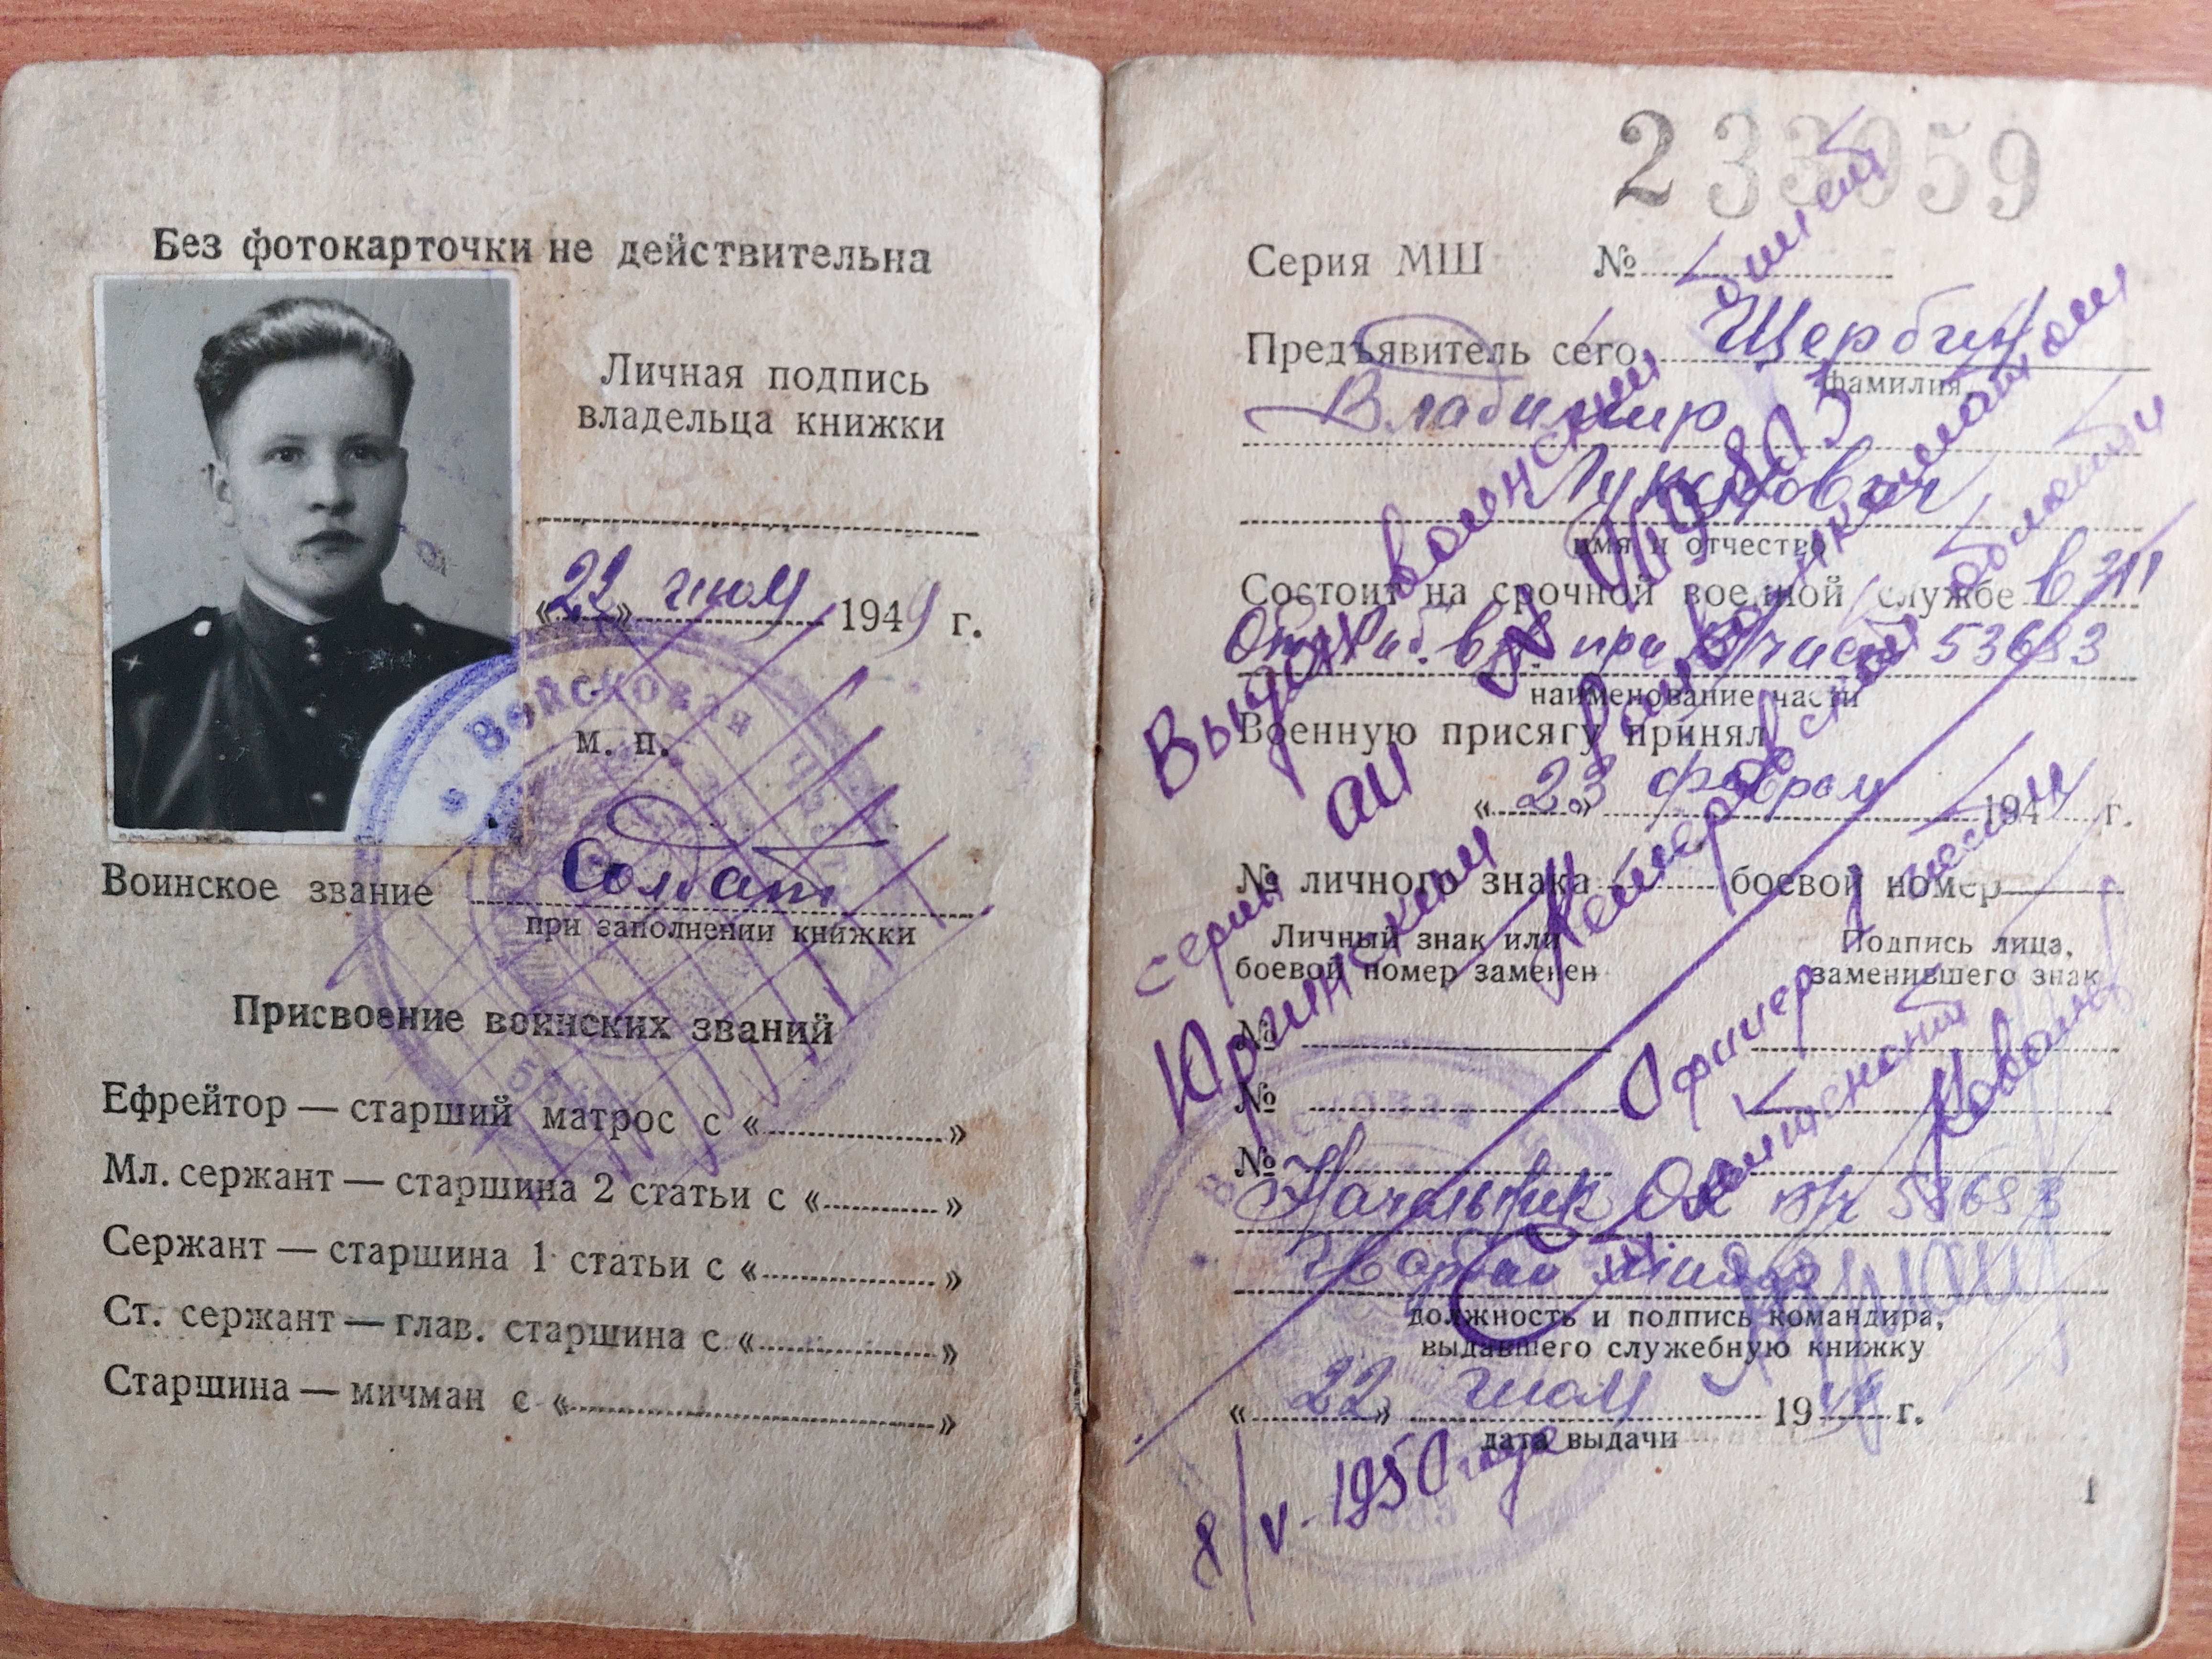 Без фотокарточки не действительна
Личная подпись
владельца книжки
«22» июля 1949 г.
Войсковая часть
м. п.
Воинское звание Солдат
при заполнении книжки
Присвоение воинских званий
Ефрейтор — старший матрос с « »
Мл. сержант — старшина 2 статьи с « »
Сержант — старшина 1 статьи с « »
Ст. сержант — глав. старшина с « »
Старшина — мичман с « »
233059
Серия МШ №
Предъявитель сего Щербин
фамилия
Владимир
Лукьянович
имя и отчество
Состоит на срочной военной службе в
при в/части 53683
наименование части
Военную присягу принял
«23» февраля 194 г.
№ личного знака боевой номер
Личный знак или
боевой номер заменен
Подпись лица,
заменившего знак
№
№
№
Начальник в/ч 53683
Гвардии
должность и подпись командира,
выдавшего служебную книжку
«22» июля 19 г.
дата выдачи
1
Выдан военский билет
серии
Юргинским Райвоенкоматом
Кемеровской области
Офицер части
лейтенант
8/V-1950 года